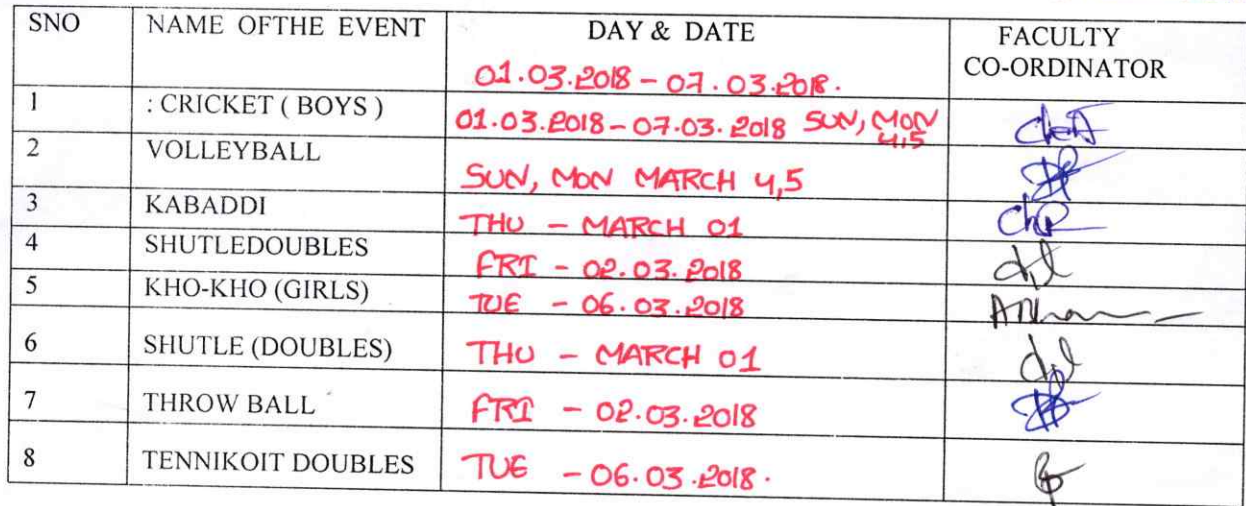 SNO NAME OFTHE EVENT DAY & DATE FACULTY
CO-ORDINATOR
01.03.2018 - 07.03.2018.
1 : CRICKET ( BOYS ) 01.03.2018 - 07.03.2018 SUN, MON
4,5
2 VOLLEYBALL SUN, MON MARCH 4,5
3 KABADDI THU - MARCH 01
4 SHUTLEDOUBLES FRI - 02.03.2018
5 KHO-KHO (GIRLS) TUE - 06.03.2018
6 SHUTLE (DOUBLES) THU - MARCH 01
7 THROW BALL FRI - 02.03.2018
8 TENNIKOIT DOUBLES TUE - 06.03.2018.